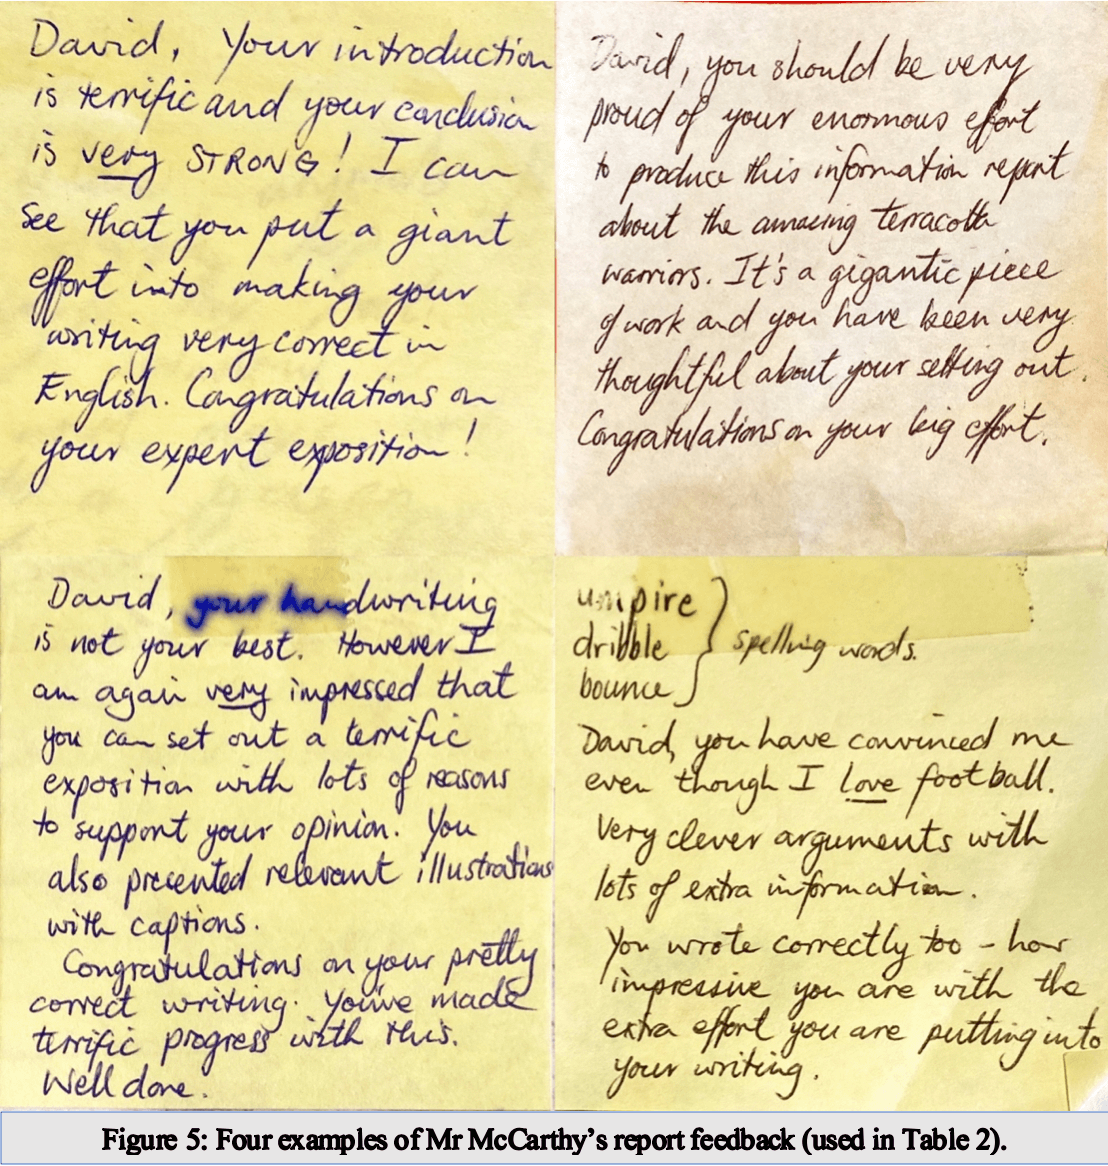 David, Your introduction
is terrific and your conclusion
is very STRONG! I can
see that you put a giant
effort into making your
writing very correct in
English. Congratulations on
your expert exposition!
David, you should be very
proud of your enormous effort
to produce this information report
about the amazing terracotta
warriors. It's a gigantic piece
of work and you have been very
thoughtful about your setting out.
Congratulations on your big effort.
David, your handwriting
is not your best. However I
am again very impressed that
you can set out a terrific
exposition with lots of reasons
to support your opinion. You
also presented relevant illustrations
with captions.
Congratulations on your pretty
correct writing. You've made
terrific progress with this.
Well done.
umpire
dribble } spelling words.
bounce
David, you have convinced me
even though I love football.
Very clever arguments with
lots of extra information.
You wrote correctly too - how
impressive you are with the
extra effort you are putting into
your writing.
Figure 5: Four examples of Mr McCarthy's report feedback (used in Table 2).